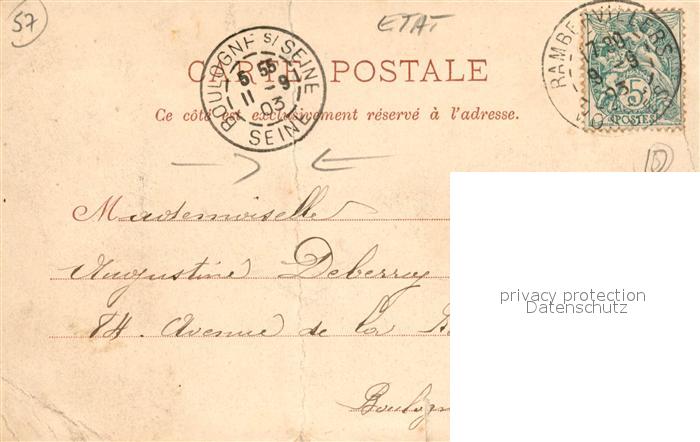 57
ETAT
CARTE POSTALE
BOULOGNE S/ SEINE
5 55
11 - 9
03
SEINE
RAMBERVILLERS
9 - 9
03
5
POSTES
Ce côté est exclusivement réservé à l'adresse.
10
Mademoiselle
Augustine Deberruy
84. Avenue de la
privacy protection
Datenschutz